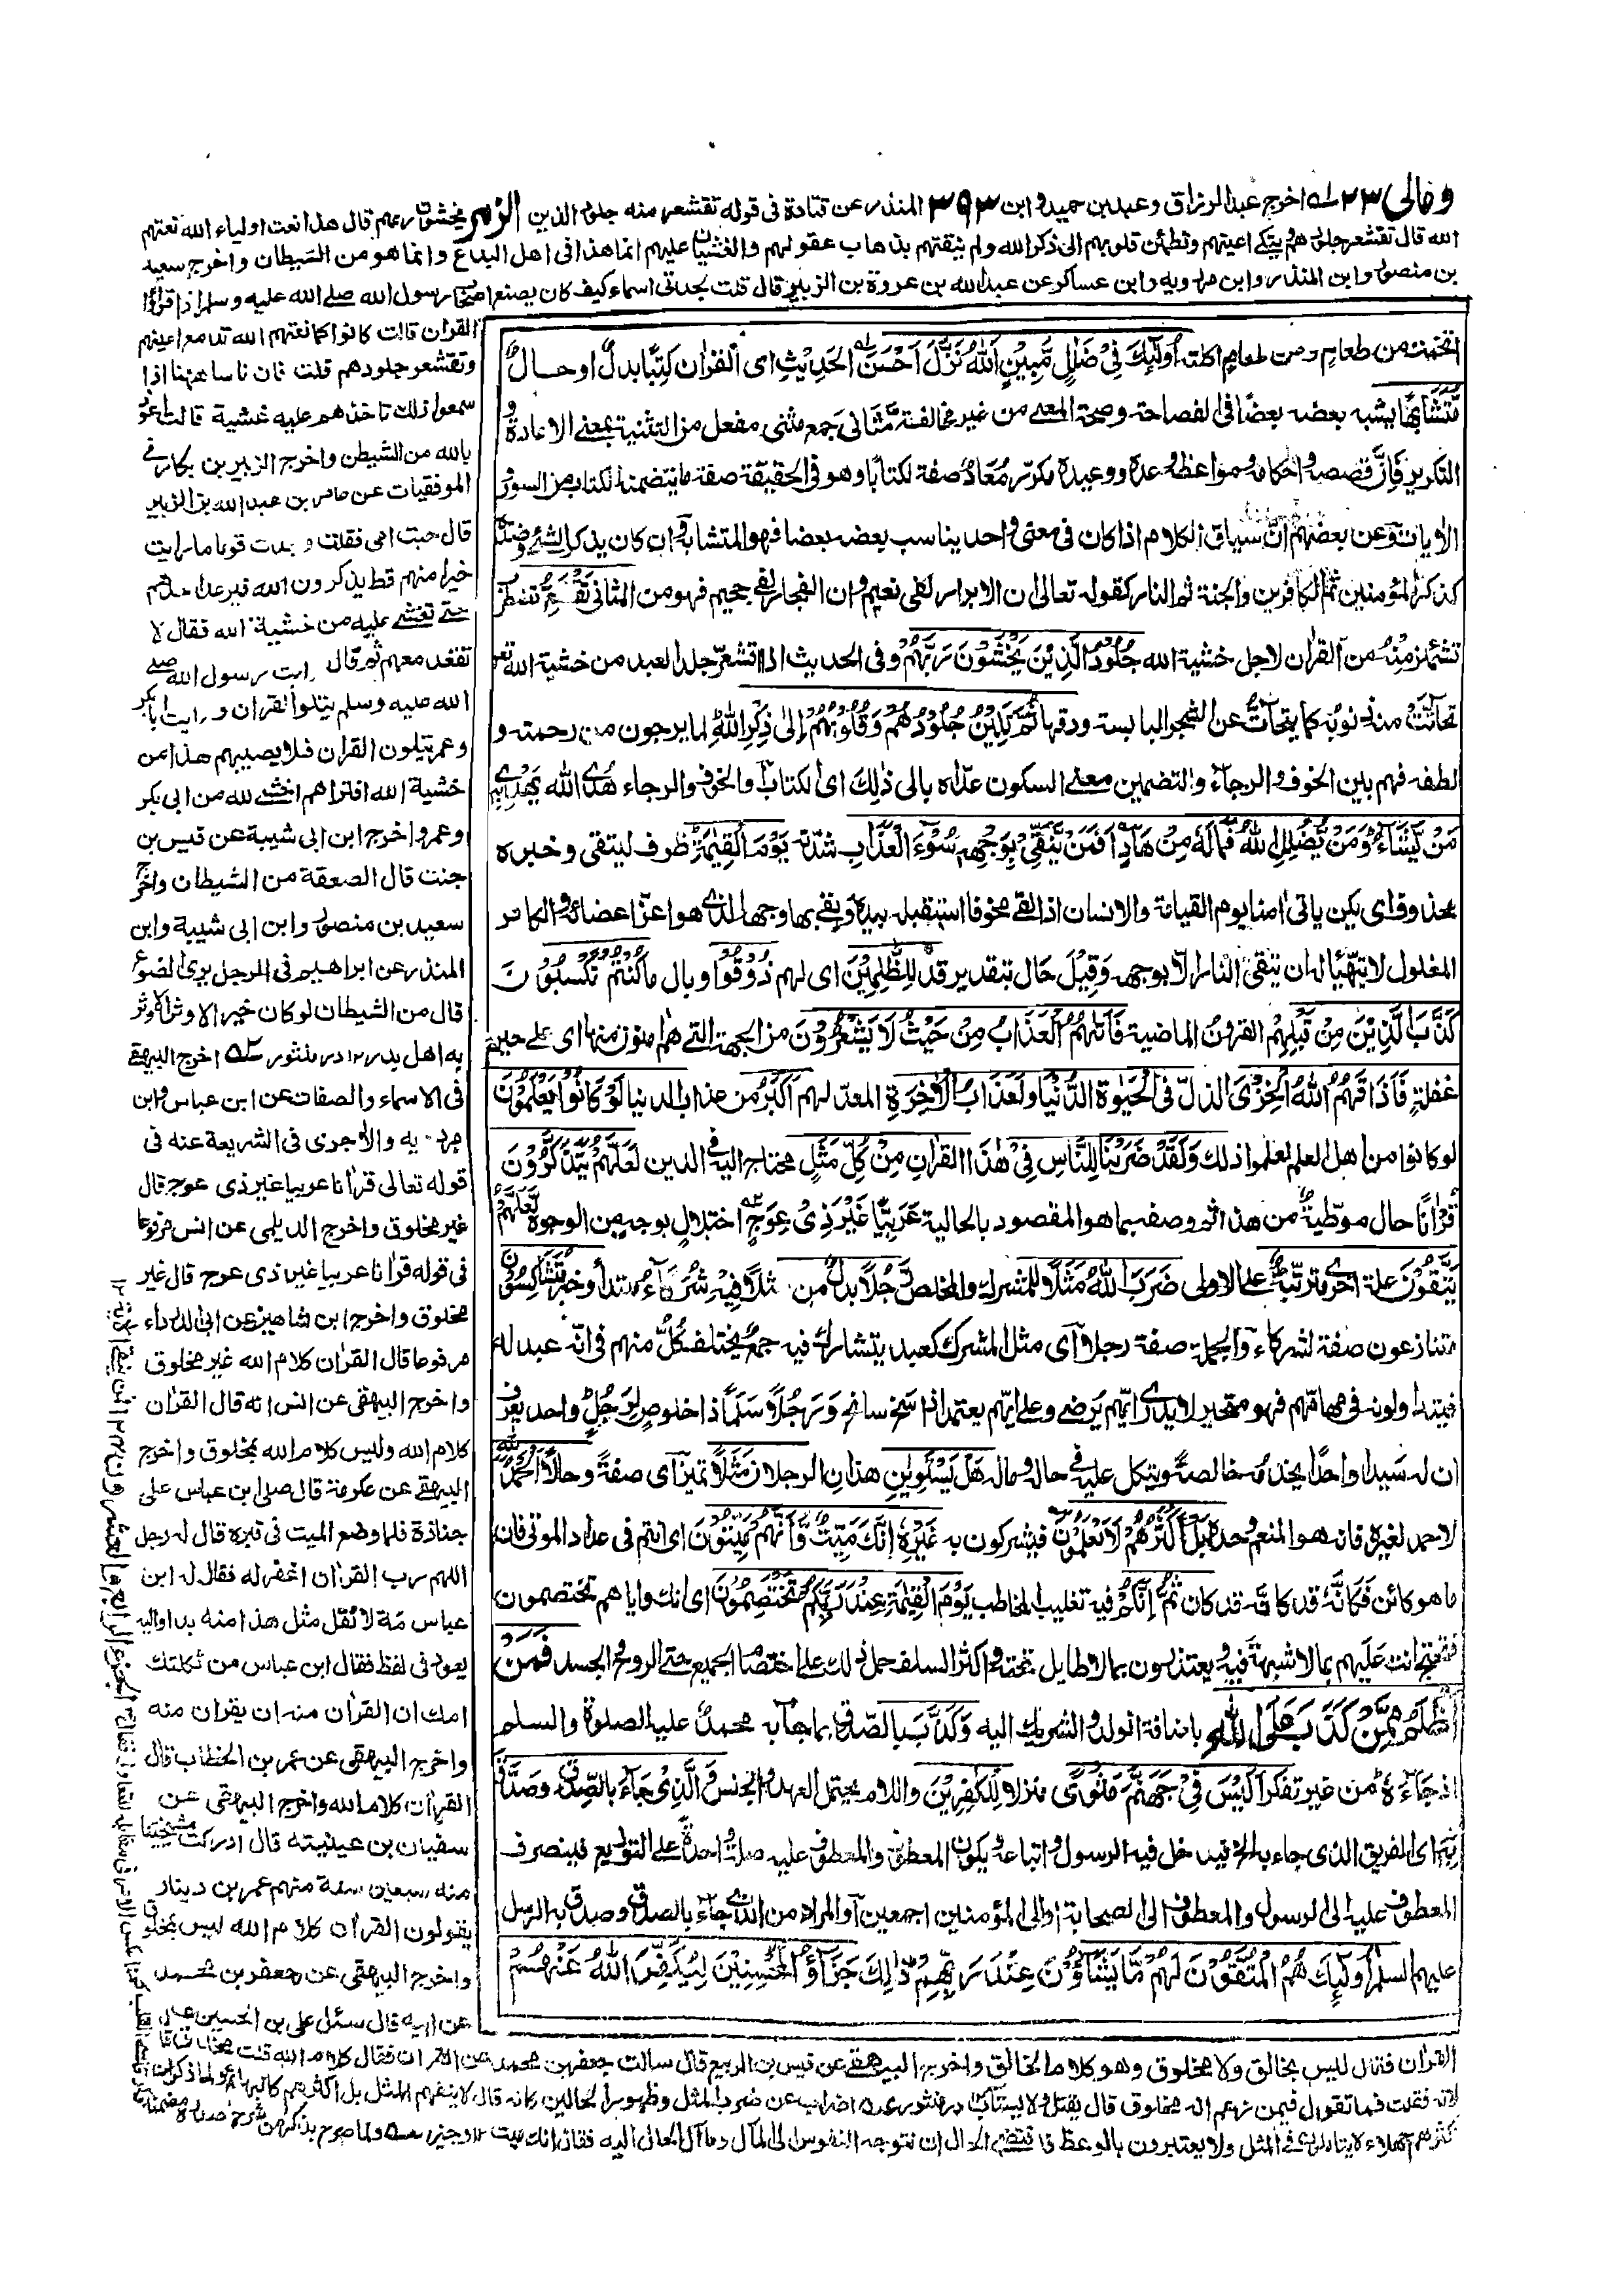 ومالی ٢٣ ٣٩٣ الزمر
له اخرج عبد الرزاق وعبد بن حميد وابن المنذر عن قتادة فی قوله تقشعر منه جلود الذين يخشون ربهم قال هذا نعت اولياء الله نعتهم
الله قال تقشعر جلودهم وتبكى اعينهم وتطمئن قلوبهم الى ذكر الله ولم ينعتهم بذهاب عقولهم والغشيان عليهم انما هذا فى اهل البدع وانما هو من الشيطان واخرج سعيد
بن منصور وابن المنذر وابن مردويه وابن عساكر عن عبد الله بن عروة بن الزبير قال قلت لجدتى اسماء كيف كان يصنع اصحاب رسول الله صلے الله عليه وسلم اذا قرأوا
القران قالت كانوا كما نعتهم الله تدمع اعينهم
وتقشعر جلودهم قلت فان ناسا ههنا اذا
سمعوا ذلك تاخذهم عليه غشية قالت اعوذ
بالله من الشيطن واخرج الزبير بن بكار فے
الموفقيات عن عامر بن عبد الله بن الزبير
قال جئت امى فقلت وجدت قوما ما رايت
خيرا منهم قط يذكرون الله فيرعد احدهم
حتے تغشے عليه من خشية الله فقال لا
تقعد معهم ثم قال رايت رسول الله صلے
الله عليه وسلم يتلوا القران ورايت ابا بكر
وعمر يتلون القران فلا يصيبهم هذا من
خشية الله افتراهم اخشے لله من ابى بكر
وعمر واخرج ابن ابى شيبة عن قيس بن
جنت قال الصعقة من الشيطان واخرج
سعيد بن منصور وابن ابى شيبة وابن
المنذر عن ابراهيم فى الرجل يرى الضوء
قال من الشيطان لو كان خيرا لاوثر
به اهل بدر ١٢ در منثور له اخرج البيهقے
فى الاسماء والصفات عن ابن عباس وابن
مردويه والاجرى فى الشريعة عنه فى
قوله تعالى قرأنا عربيا غير ذى عوج قال
غير مخلوق واخرج الديلمى عن انس مرفوعا
فى قوله قرأنا عربيا غير ذى عوج قال غير
مخلوق واخرج ابن شاهين عن ابى الدرداء
مرفوعا قال القران كلام الله غير مخلوق
واخرج البيهقى عن انس انه قال القران
كلام الله وليس كلام الله بمخلوق واخرج
البيهقے عن عكرمة قال صلى ابن عباس على
جنازة فلما وضع الميت فى قبره قال له رجل
اللهم رب القران اغفر له فقال له ابن
عباس مه لا تقل مثل هذا منه بدا واليه
يعود فى لفظ فقال ابن عباس من ثكلتك
امك ان القران منه ان القران منه
واخرج البيهقى عن عمر بن الخطاب قال
القران كلام الله واخرج البيهقى عن
سفيان بن عيينة قال ادركت مشيختنا
منه سبعين سنة منهم عمر بن دينار
يقولون القران كلام الله ليس بمخلوق
واخرج البيهقى عن جعفر بن محمد
عن ابيه قال سئل على بن الحسين عن
اتخمت من طعام ومن طعام اكلته أُولٰٓئِكَ فِیْ ضَلٰلٍ مُّبِيْنٍ اَللّٰهُ نَزَّلَ اَحْسَنَ الْحَدِيْثِ اى القران كِتٰبًا بدل او حال
مُّتَشَابِهًا يشبه بعضه بعضا فى الفصاحة وصحة المعنے من غير مخالفة مَّثَانِیَ جمع مثنى مفعل من التثنية بمعنے الاعادة و
التكرير فانّ قصصه واحكامه ومواعظه وعده ووعيده مكرّر مُعَادٌ صفة لكتابا وهو فى الحقيقة صفة ما يتضمنه الكتاب من السور و
الايات وعن بعضهم انّ سياق الكلام اذا كان فى معنى واحد يناسب بعضه بعضا فهو المتشابه وان كان يذكر الشئ وضده
كذكر المؤمنين ثم الكافرين والجنة ثم النار كقوله تعالى ان الابرار لفى نعيم وان الفجار لفى جحيم فهو من المثانى تَقْشَعِرُّ تضطرب
تشمئز مِنْهُ من القران لاجل خشية الله جُلُوْدُ الَّذِيْنَ يَخْشَوْنَ رَبَّهُمْ وفى الحديث اذا اقشعرّ جلد العبد من خشية الله تعالى
تحاتّتْ منه ذنوبه كما يتحاتّ عن الشجر اليابسة ورقها ثُمَّ تَلِيْنُ جُلُوْدُهُمْ وَقُلُوْبُهُمْ اِلٰى ذِكْرِ اللّٰهِ لما يرجون من رحمته و
لطفه فهم بين الخوف والرجاء ولتضمين معنے السكون عدّاه بالى ذٰلِكَ اى الكتاب او الخوف والرجاء هُدَى اللّٰهِ يَهْدِیْ بِهٖ
مَنْ يَّشَآءُ وَمَنْ يُّضْلِلِ اللّٰهُ فَمَا لَهٗ مِنْ هَادٍ اَفَمَنْ يَّتَّقِیْ بِوَجْهِهٖ سُوْٓءَ الْعَذَابِ شدّته يَوْمَ الْقِيٰمَةِ ظرف ليتقى وخبره
محذوف اى كمن ياتى امنا يوم القيامة والانسان اذا لقے مخوفا استقبله بيده ويقے بها وجهه الذے هو اعزّ اعضائه والكافر
المغلول لا يتهيّأ له ان يتقى النار الّا بوجهه وَقِيْلَ حال بتقدير قد لِلظّٰلِمِيْنَ اى لهم ذُوْقُوْا وبال مَا كُنْتُمْ تَكْسِبُوْنَ
كَذَّبَ الَّذِيْنَ مِنْ قَبْلِهِمْ القرون الماضية فَاَتٰىهُمُ الْعَذَابُ مِنْ حَيْثُ لَا يَشْعُرُوْنَ من الجهة التے هم امنون منها اى على حين
غفلةٍ فَاَذَاقَهُمُ اللّٰهُ الْخِزْىَ الذلّ فِى الْحَيٰوةِ الدُّنْيَا وَلَعَذَابُ الْاٰخِرَةِ المعدّ لهم اَكْبَرُ من عذاب الدنيا لَوْ كَانُوْا يَعْلَمُوْنَ
لو كانوا من اهل العلم لعلموا ذلك وَلَقَدْ ضَرَبْنَا لِلنَّاسِ فِیْ هٰذَا الْقُرْاٰنِ مِنْ كُلِّ مَثَلٍ محتاج اليه فے الدين لَعَلَّهُمْ يَتَذَكَّرُوْنَ
قُرْاٰنًا حال موطّئة من هذا ثم وصفه بما هو المقصود بالحالية عَرَبِيًّا غَيْرَ ذِیْ عِوَجٍ اختلالٍ بوجه من الوجوه لَّعَلَّهُمْ
يَتَّقُوْنَ علة اخرى مرتّبة على الاولى ضَرَبَ اللّٰهُ مَثَلًا للمشرك والمخلص رَّجُلًا بدل من مثلا فِيْهِ شُرَكَآءُ مبتدأ وخبر مُتَشَاكِسُوْنَ
متنازعون صفة لشركاء والجملة صفة رجلا اى مثل المشرك كعبد يتشارك فيه جمع يختلف كلّ منهم فى انّه عبد له
فيتداولونه فى مهامّهم فهو متحير لا يدرى ايّهم يُرضے وعلى ايّهم يعتمد اذا سنح سانح وَرَجُلًا سَلَمًا ذا خلوص لِّرَجُلٍ واحد يعرف
ان له سيدا واحدًا يخدمه خالصة ويتكل عليه فے حاله وماله هَلْ يَسْتَوِيٰنِ هذان الرجلان مَثَلًا تميز اى صفةً وحالًا اَلْحَمْدُ لِلّٰهِ
لا حمد لغيره فانه هو المنعم وحده بَلْ اَكْثَرُهُمْ لَا يَعْلَمُوْنَ فيشركون به غَيْرَه اِنَّكَ مَيِّتٌ وَّاِنَّهُمْ مَّيِّتُوْنَ اى انتم فى عداد الموتى فان
ما هو كائن فكانّه قد كان ثُمَّ اِنَّكُمْ فيه تغليب المخاطب يَوْمَ الْقِيٰمَةِ عِنْدَ رَبِّكُمْ تَخْتَصِمُوْنَ اى انك واياهم تختصمون
فتحتجّ انت عليهم بما لا شبهة فيه ويعتذرون بما لا طايل تحته واكثر السلف حمل ذلك على اختصام الجميع حتے الروح والجسد فَمَنْ
اَظْلَمُ مِمَّنْ كَذَبَ عَلَى اللّٰهِ باضافة الولد والشريك اليه وَكَذَّبَ بِالصِّدْقِ بما جاء به محمد عليه الصلوة والسلم
اِذْ جَآءَهٗ من غير تفكر اَلَيْسَ فِیْ جَهَنَّمَ مَثْوًى منزلا لِّلْكٰفِرِيْنَ واللام يحتمل العهد والجنس وَالَّذِیْ جَآءَ بِالصِّدْقِ وَصَدَّقَ
بِهٖ اى الفريق الذى جاء بالحق فيدخل فيه الرسول واتباعه ويكون المعطوف والمعطوف عليه صلة واحدة على التوزيع فينصرف
المعطوف عليه الى الرسول والمعطوف الى الصحابة او الى المؤمنين اجمعين او المراد من الذے جاء بالصدق وصدق به الرسل
عليهم السلم اُولٰٓئِكَ هُمُ الْمُتَّقُوْنَ لَهُمْ مَّا يَشَآءُوْنَ عِنْدَ رَبِّهِمْ ذٰلِكَ جَزٰٓؤُا الْمُحْسِنِيْنَ لِيُكَفِّرَ اللّٰهُ عَنْهُمْ
القران فقال ليس بخالق ولا مخلوق وهو كلام الخالق واخرج البيهقے عن قيس بن الربيع قال سالت جعفر بن محمد عن القران فقال كلام الله قلت مخلوق قال
لا قلت فما تقول فيمن زعم انه مخلوق قال يقتل ولا يستتاب در منثور اضراب عن ضرب المثل وظهور الحالين كانه قال لا ينفعهم المثل بل اكثرهم
فے المثل ولا يعتبرون بالوعظ الحال ان تتوجه النفوس الى المآل وما آل الحال اليه فقال انك ميت ١٢ وجيز